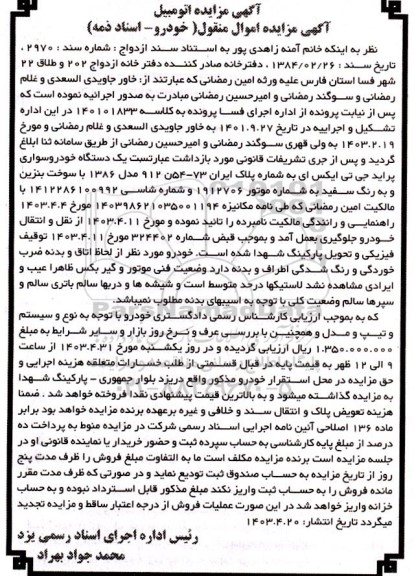 آگهی مزایده اتومبیل
آگهی مزایده اموال منقول( خودرو- اسناد ذمه)
نظر به اینکه خانم آمنه زاهدی پور به استناد سند ازدواج : شماره سند : ۲۹۷۰ ،
تاریخ سند : ۱۳۸۴/۰۲/۲۶ ، دفترخانه صادر کننده دفتر خانه ازدواج ۲۰۲ و طلاق ۲۲
شهر فسا استان فارس علیه ورثه امین رمضانی که عبارتند از: خاور جاویدی السعدی و غلام
رمضانی و سوگند رمضانی و امیرحسین رمضانی مبادرت به صدور اجرائیه نموده است که
پس از نیابت پرونده از اداره اجرای فسا پرونده به کلاسه ۱۴۰۱۰۱۸۳۳ در این اداره
تشکیل و اجراییه در تاریخ ۱۴۰۱.۹.۲۷ به خاور جاویدی السعدی و غلام رمضانی و مورخ
۱۴۰۳.۲.۱۹ به ولی قهری سوگند رمضانی و امیرحسین رمضانی از طریق سامانه ثنا ابلاغ
گردید و پس از جری تشریفات قانونی مورد بازداشت عبارتست یک دستگاه خودروسواری
پراید جی تی ایکس ای به شماره پلاک ایران ۷۳-۵۴ن۹۱۲ مدل ۱۳۸۶ با سوخت بنزین
و به رنگ سفید به شماره موتور ۱۹۱۲۷۰۶ و شماره شاسی ۱۴۱۲۲۸۶۱۰۰۹۹۲ با
مالکیت امین رمضانی که طی نامه مکانیزه ۱۴۰۳۹۸۶۲۱۰۳۵۰۰۱۱۹۴ مورخ ۱۴۰۳.۴.۴
راهنمایی و رانندگی مالکیت نامبرده را تائید نموده و مورخ ۱۴۰۳.۴.۱۱ از نقل و انتقال
خودرو جلوگیری بعمل آمد و بموجب قبض شماره ۳۲۴۴۰۲ مورخ ۱۴۰۳.۴.۱۱ توقیف
فیزیکی و تحویل پارکینگ شهدا شده است. خودرو مورد نظر از لحاظ اتاق و بدنه ضرب
خوردگی و رنگ شدگی اطراف و بدنه دارد وضعیت فنی موتور و گیر بکس ظاهرا عیب و
ایرادی مشاهده نشد لاستیکها درحد متوسط است و شیشه ها و دربها سالم باتری سالم و
سپرها سالم وضعیت کلی با توجه به آسیبهای بدنه مطلوب نمیباشد.
که به بموجب ارزیابی کارشناس رسمی دادگستری خودرو با توجه به نوع و سیستم
و تیپ و مدل و همچنین با بررسی عرف و نرخ روز بازار و سایر شرایط به مبلغ
۱.۳۵۰.۰۰۰.۰۰۰ ریال ارزیابی گردیده و در روز یکشنبه مورخ ۱۴۰۳.۴.۳۱ از ساعت
۹ الی ۱۲ ظهر به قیمت پایه در قبال قسمتی از طلب خسارات متعلقه هزینه اجرایی و
حق مزایده در محل استقرار خودرو مذکور واقع دریزد بلوار جمهوری - پارکینگ شهدا
به مزایده گذاشته میشود و به بالاترین قیمت پیشنهادی نقدا فروخته خواهد شد . ضمنا
هزینه تعویض پلاک و انتقال سند و خلافی و غیره برعهده برنده مزایده خواهد بود برابر
ماده ۱۳۶ اصلاحی آئین نامه اجرایی اسناد رسمی شرکت در مزایده منوط به پرداخت ده
درصد از مبلغ پایه کارشناسی به حساب سپرده ثبت و حضور خریدار یا نماینده قانونی او در
جلسه مزایده است برنده مزایده مکلف است ما به التفاوت مبلغ فروش را ظرف مدت پنج
روز از تاریخ مزایده به حساب صندوق ثبت تودیع نماید و در صورتی که ظرف مدت مقرر
مانده فروش را به حساب ثبت واریز نکند مبلغ مذکور قابل استرداد نبوده و به حساب
خزانه واریز خواهد شد در این صورت عملیات فروش از درجه اعتبار ساقط و مزایده تجدید
میگردد تاریخ انتشار: ۱۴۰۳.۴.۲۰
رئیس اداره اجرای اسناد رسمی یزد
محمد جواد بهراد